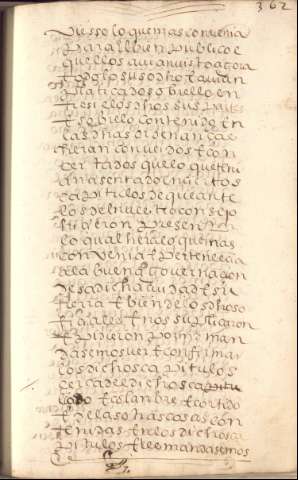 362
vuesso lo que mas convenia
para llo en publico e
que ellos avian visto agora
todo lo suso dho e avian
platicado sobre ello en
tre si e los dhos sus partes
e sobre lo contenido en
las dhas ordenanças e
fueran convenidos e con
certados que lo que tenia
an asentado en ciertos
capitulos de que ante
los del nuestro consejo
hizieron presentaçion
lo qual hera lo que mas
convenia e pertenecia
a la buena governacion
desa dicha ciudad e su
tierra e bien de los dhos o
ficiales e nos suplicaron
e pidieron por md man
dasemos ver e confirmar
los dichos capitulos
cerca de el dicho capitu
lado e colanbre e cortido
e de las otras cosas con
tenidas en los dichos ca
pitulos e le mandasemos